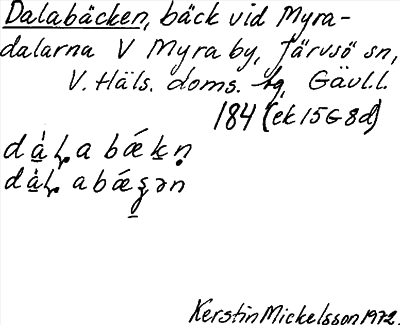 Dalabäcken, bäck vid Myra-
dalarna V Myra by, Järvsö sn,
V. Häls. doms. tg, Gävl.l.
184 (ek15G8d)
dà̠ḷa bǽḵṇ
dà̠ḷabǽʂ̠ən
Kerstin Mickelsson 1972.